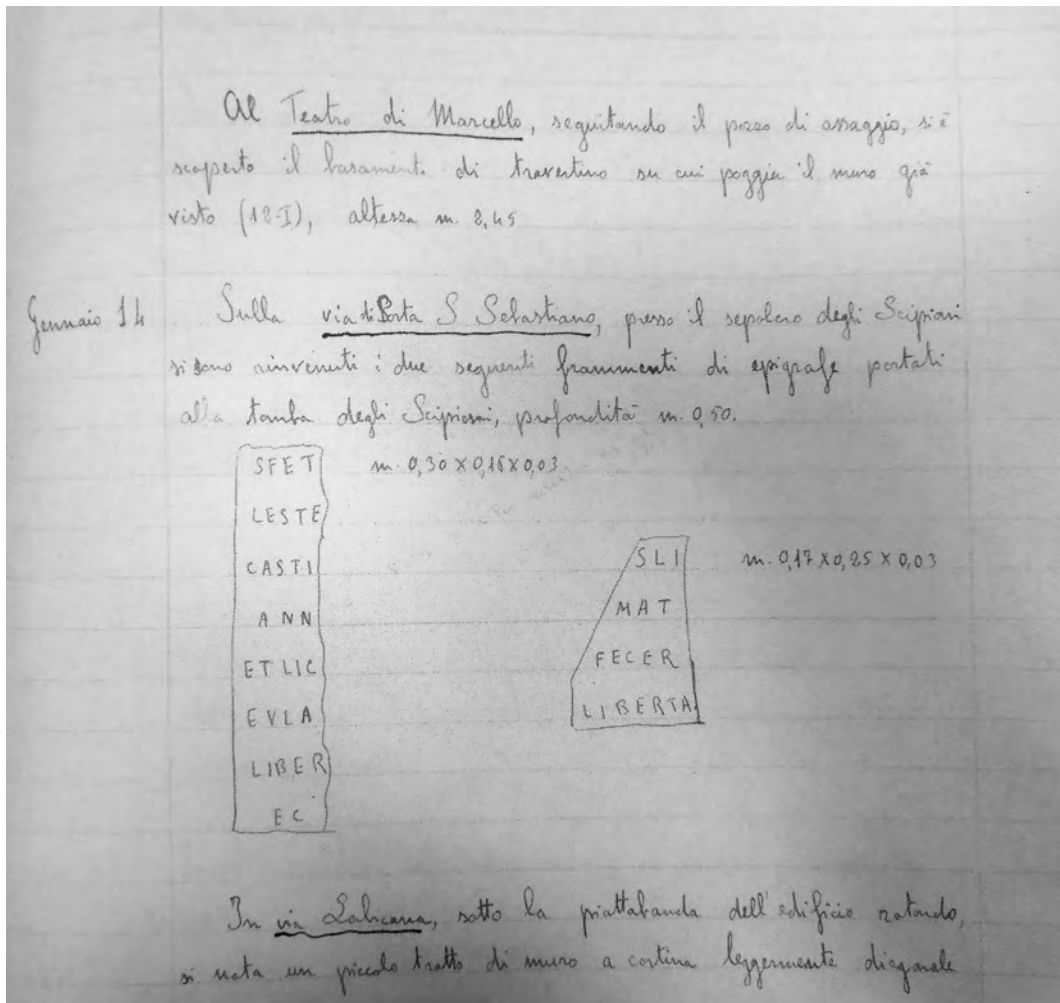 Al Teatro di Marcello, seguitando il pozzo di assaggio, si è
scoperto il basamento di travertino su cui poggia il muro già
visto (12-I), altezza m. 2,45
Gennaio 14 Sulla via di Porta S Sebastiano, presso il sepolcro degli Scipioni
si sono rinvenuti i due seguenti frammenti di epigrafe portati
alla tomba degli Scipioni, profondità m. 0,50.
SFET m. 0,30 x 0,16 x 0,03
LESTE
CASTI
ANN
ET LIC
EVLA
LIBER
EC
SLI m. 0,17 x 0,25 x 0,03
MAT
FECER
LIBERTA
In via Labicana, sotto la piattabanda dell'edificio rotondo,
si nota un piccolo tratto di muro a cortina leggermente diagonale